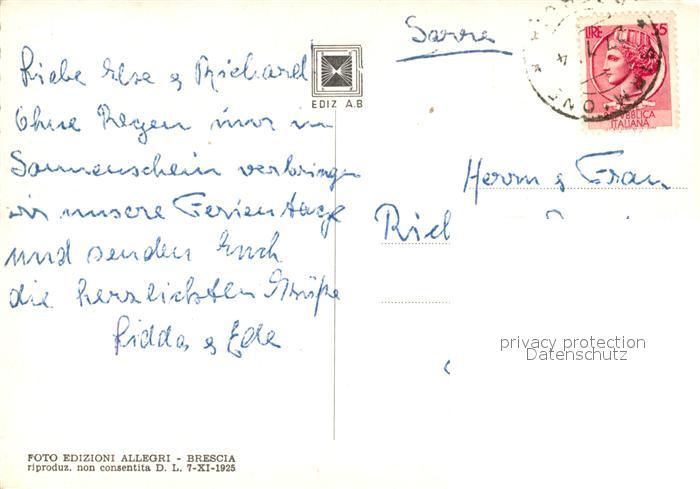 Sarre
LIRE 35
REPUBBLICA
ITALIANA
SIRMIONE
Liebe Else & Richard!
EDIZ A.B
Ohne Regen nur in
Sonnenschein verbringen
wir unsere Ferientage
und senden Euch
die herzlichsten Grüße
& Ede
Herrn & Frau
privacy protection
Datenschutz
FOTO EDIZIONI ALLEGRI - BRESCIA
riproduz. non consentita D. L. 7-XI-1925